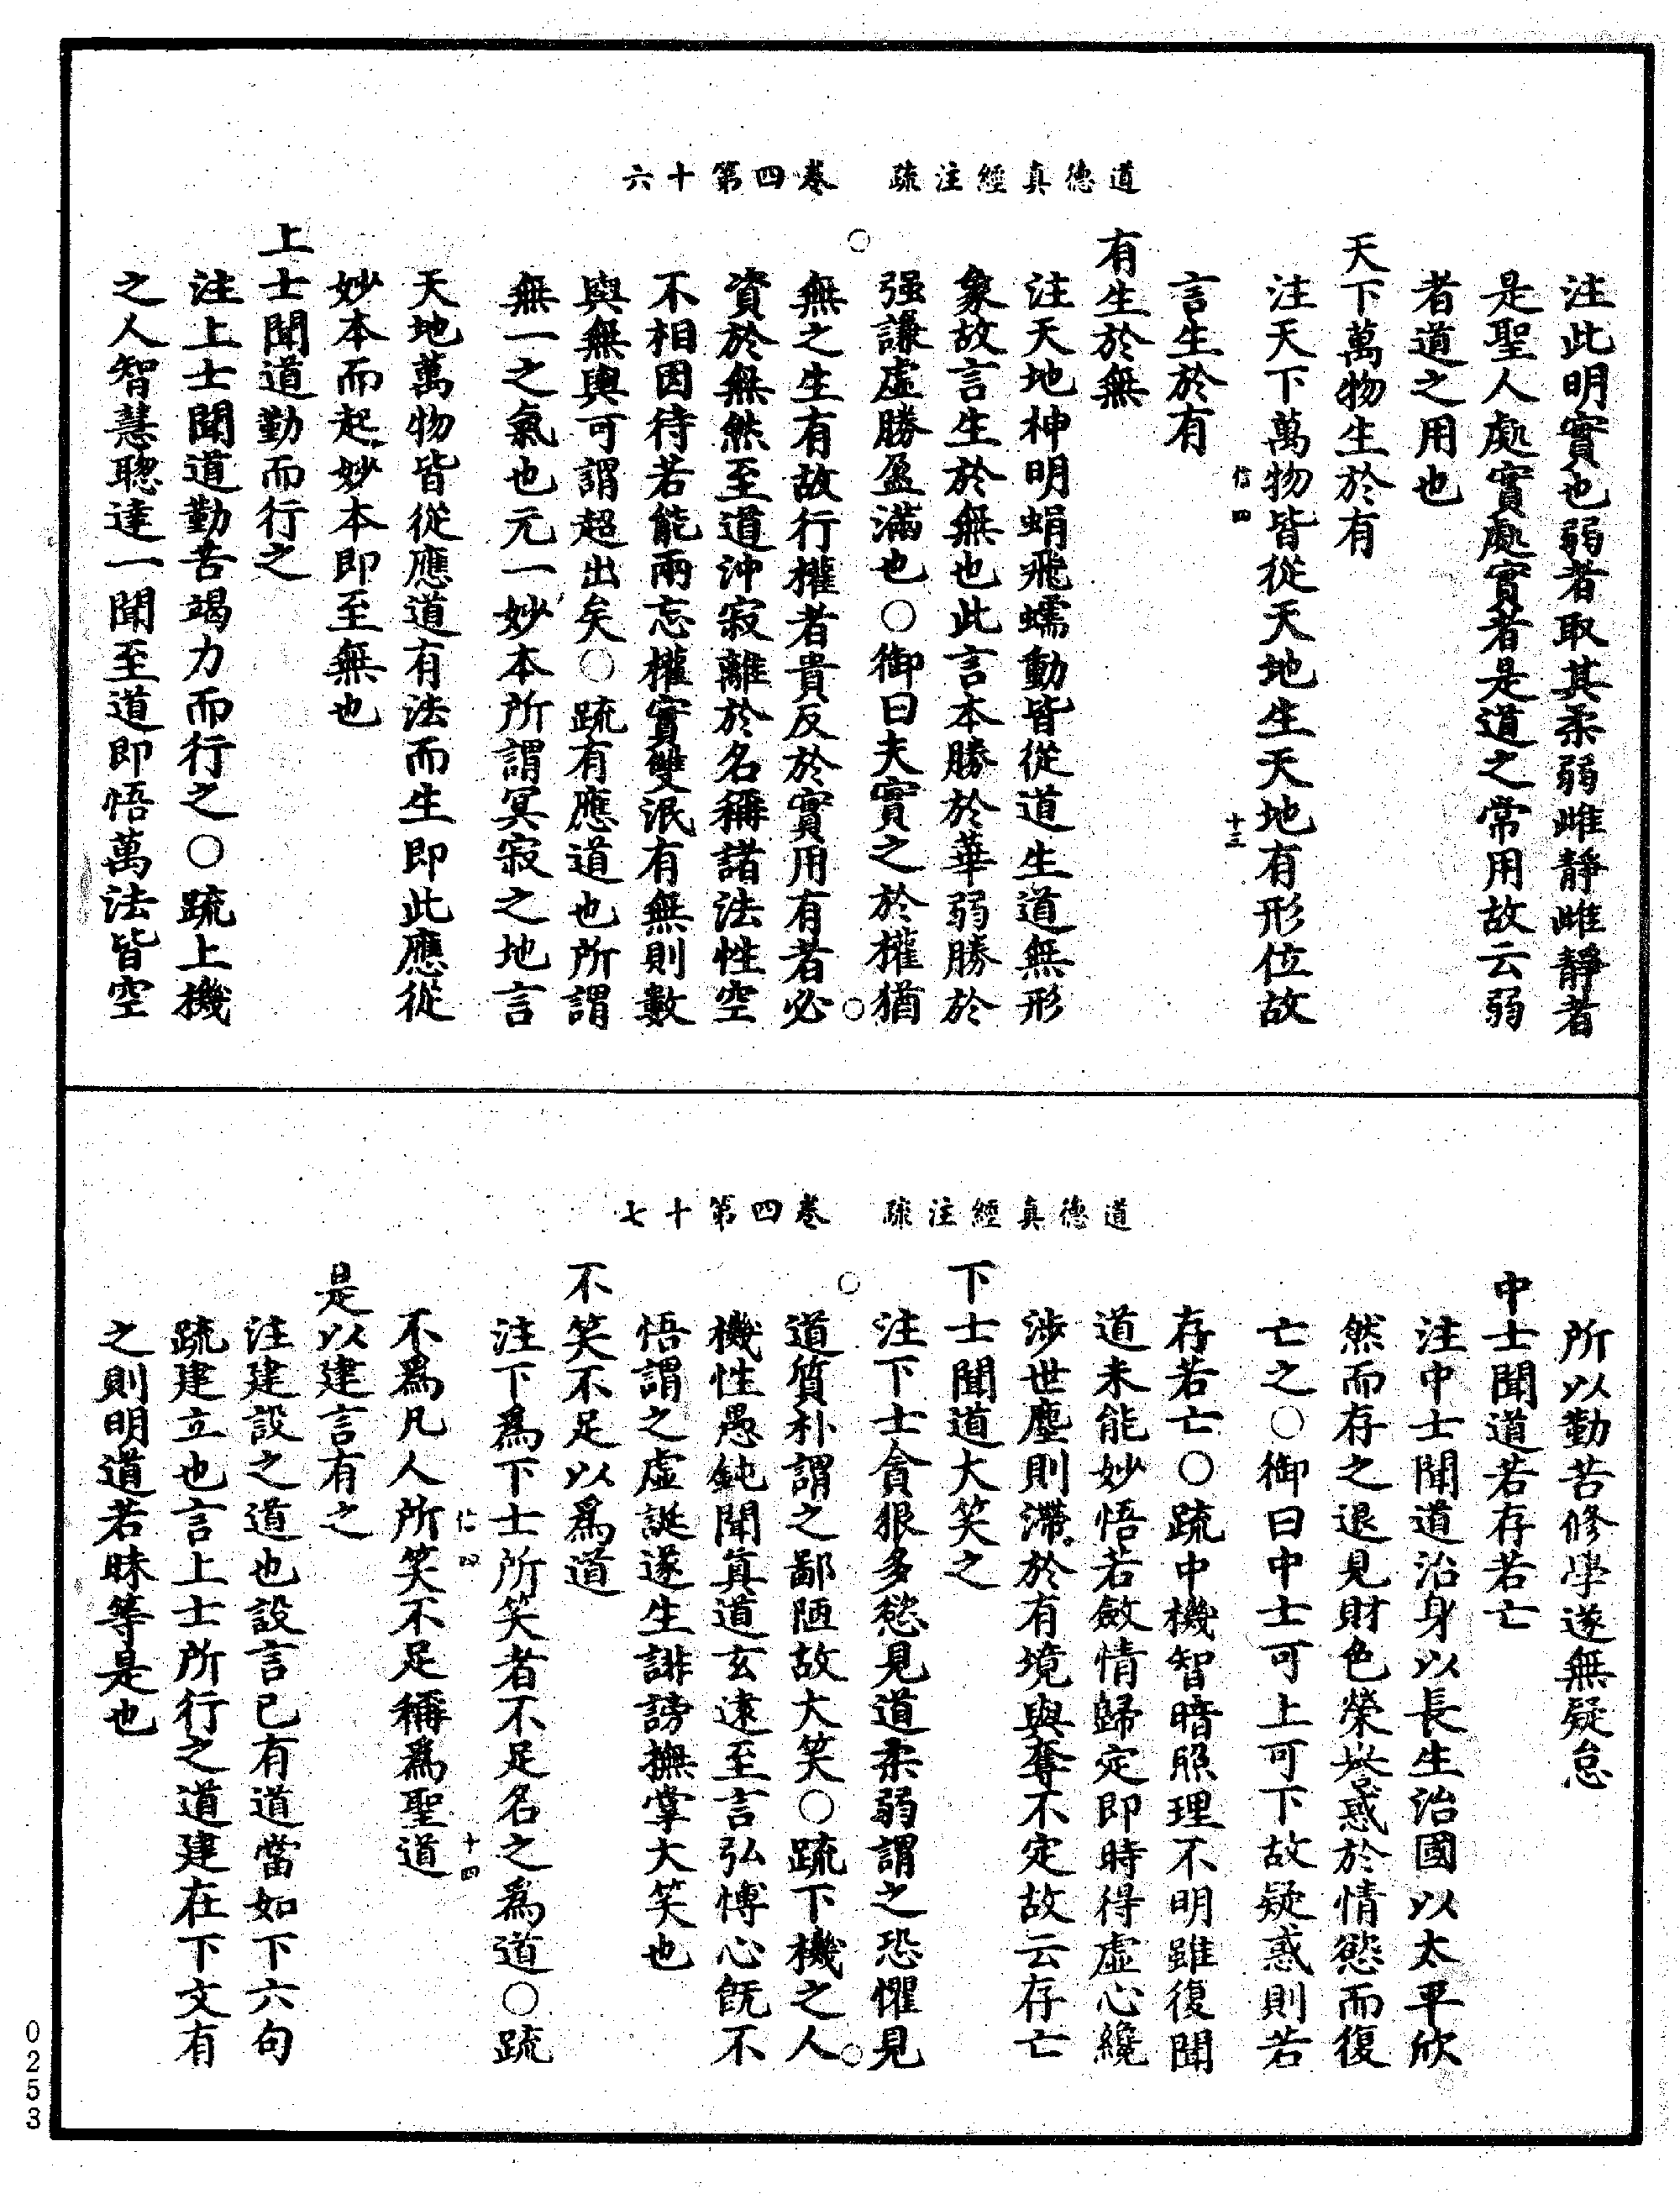 道德真經注疏　卷四第十六
注此明實也弱者取其柔弱雌靜雌靜者
是聖人處實處實者是道之常用故云弱
者道之用也
天下萬物生於有
注天下萬物皆從天地生天地有形位故
信四　十三
言生於有
有生於無
注天地神明蜎飛蠕動皆從道生道無形
象故言生於無也此言本勝於華弱勝於
强謙虛勝盈滿也○御曰夫實之於權猶
無之生有故行權者貴反於實用有者必
資於無然至道沖寂離於名稱諸法性空
不相因待若能兩忘權實雙泯有無則數
輿無輿可謂超出矣○疏有應道也所謂
無一之氣也元一妙本所謂冥寂之地言
天地萬物皆從應道有法而生即此應從
妙本而起妙本即至無也
上士聞道勤而行之
注上士聞道勤苦竭力而行之○疏上機
之人智慧聰達一聞至道即悟萬法皆空
道德真經注疏　卷四第十七
所以勤苦修學遂無疑怠
中士聞道若存若亡
注中士聞道治身以長生治國以太平欣
然而存之退見財色榮譽惑於情慾而復
亡之○御曰中士可上可下故疑惑則若
存若亡○疏中機智暗照理不明雖復聞
道未能妙悟若斂情歸定即時得虛心纔
涉世塵則滯於有境與奪不定故云存亡
下士聞道大笑之
注下士貪狠多慾見道柔弱謂之恐懼見
道質朴謂之鄙陋故大笑○疏下機之人
機性愚鈍聞真道玄遠至言弘博心旣不
悟謂之虛誕遂生誹謗撫掌大笑也
不笑不足以爲道
注下爲下士所笑者不足名之爲道○疏
信四　十四
不爲凡人所笑不足稱爲聖道
是以建言有之
注建設之道也設言已有道當如下六句
疏建立也言上士所行之道建在下文有
之則明道若昧等是也
0253